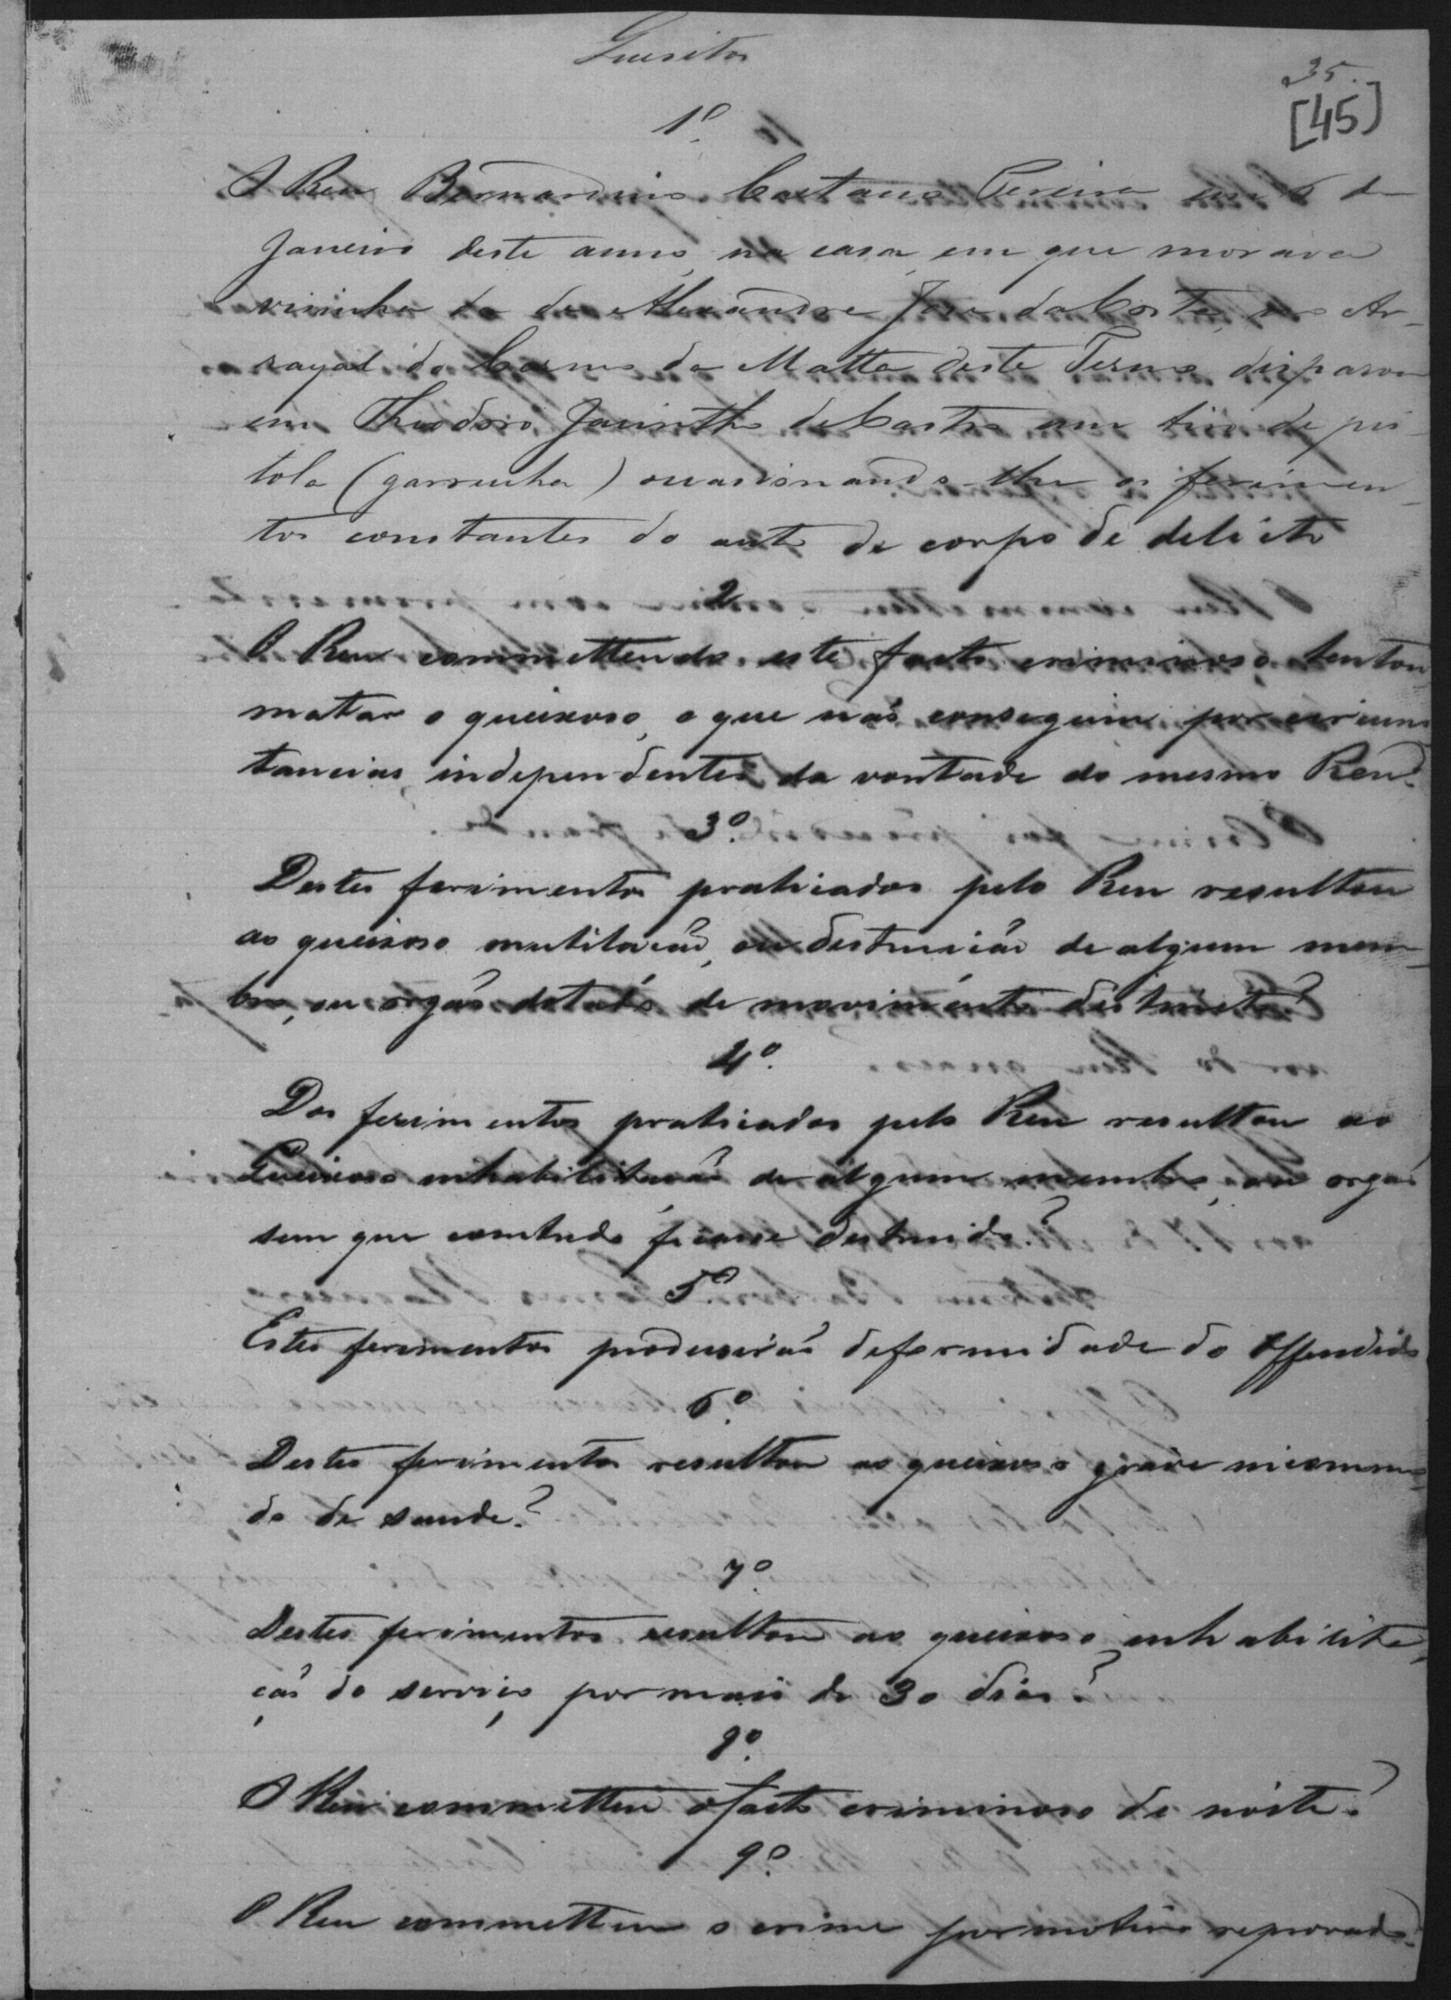 Quesitos
35.
[45]
1º
O Reu Bernardino Caetano Pereira em 6 de
Janeiro deste anno, na casa em que morava
visinha da de Alexandre José da Costa, no Ar-
rayal do Carmo da Matta deste Termo disparou
em Theodoro Jacintho de Castro um tiro de pis-
tola (garrucha) occasionando-lhe os ferimen-
tos constantes do auto de corpo de delicto
2
O Reu commettendo este facto criminoso tentou
matar o queixoso, o que não conseguiu por circuns
tancias independentes da vontade do mesmo Reu?
3º
Destes ferimentos praticados pelo Reu resultou
ao queixoso mutilação, ou destruição de algum mem-
bro, ou orgão dotado de movimento distincto?
4º
Dos ferimentos praticados pelo Reu resultou ao
Queixoso inhabilitação de algum membro, ou orgão
sem que comtudo ficasse destruido?
5º
Estes ferimentos produsirão deformidade do Offendido
6º
Destes ferimentos resultou ao queixoso grave incommo
do de saude?
7º
Destes ferimentos resultou ao queixoso inhabilita
ção do serviço por mais de 30 dias?
8º
O Reu commetteu o facto criminoso de noite?
9º
O Reu commetteu o crime por motivo reprovado?